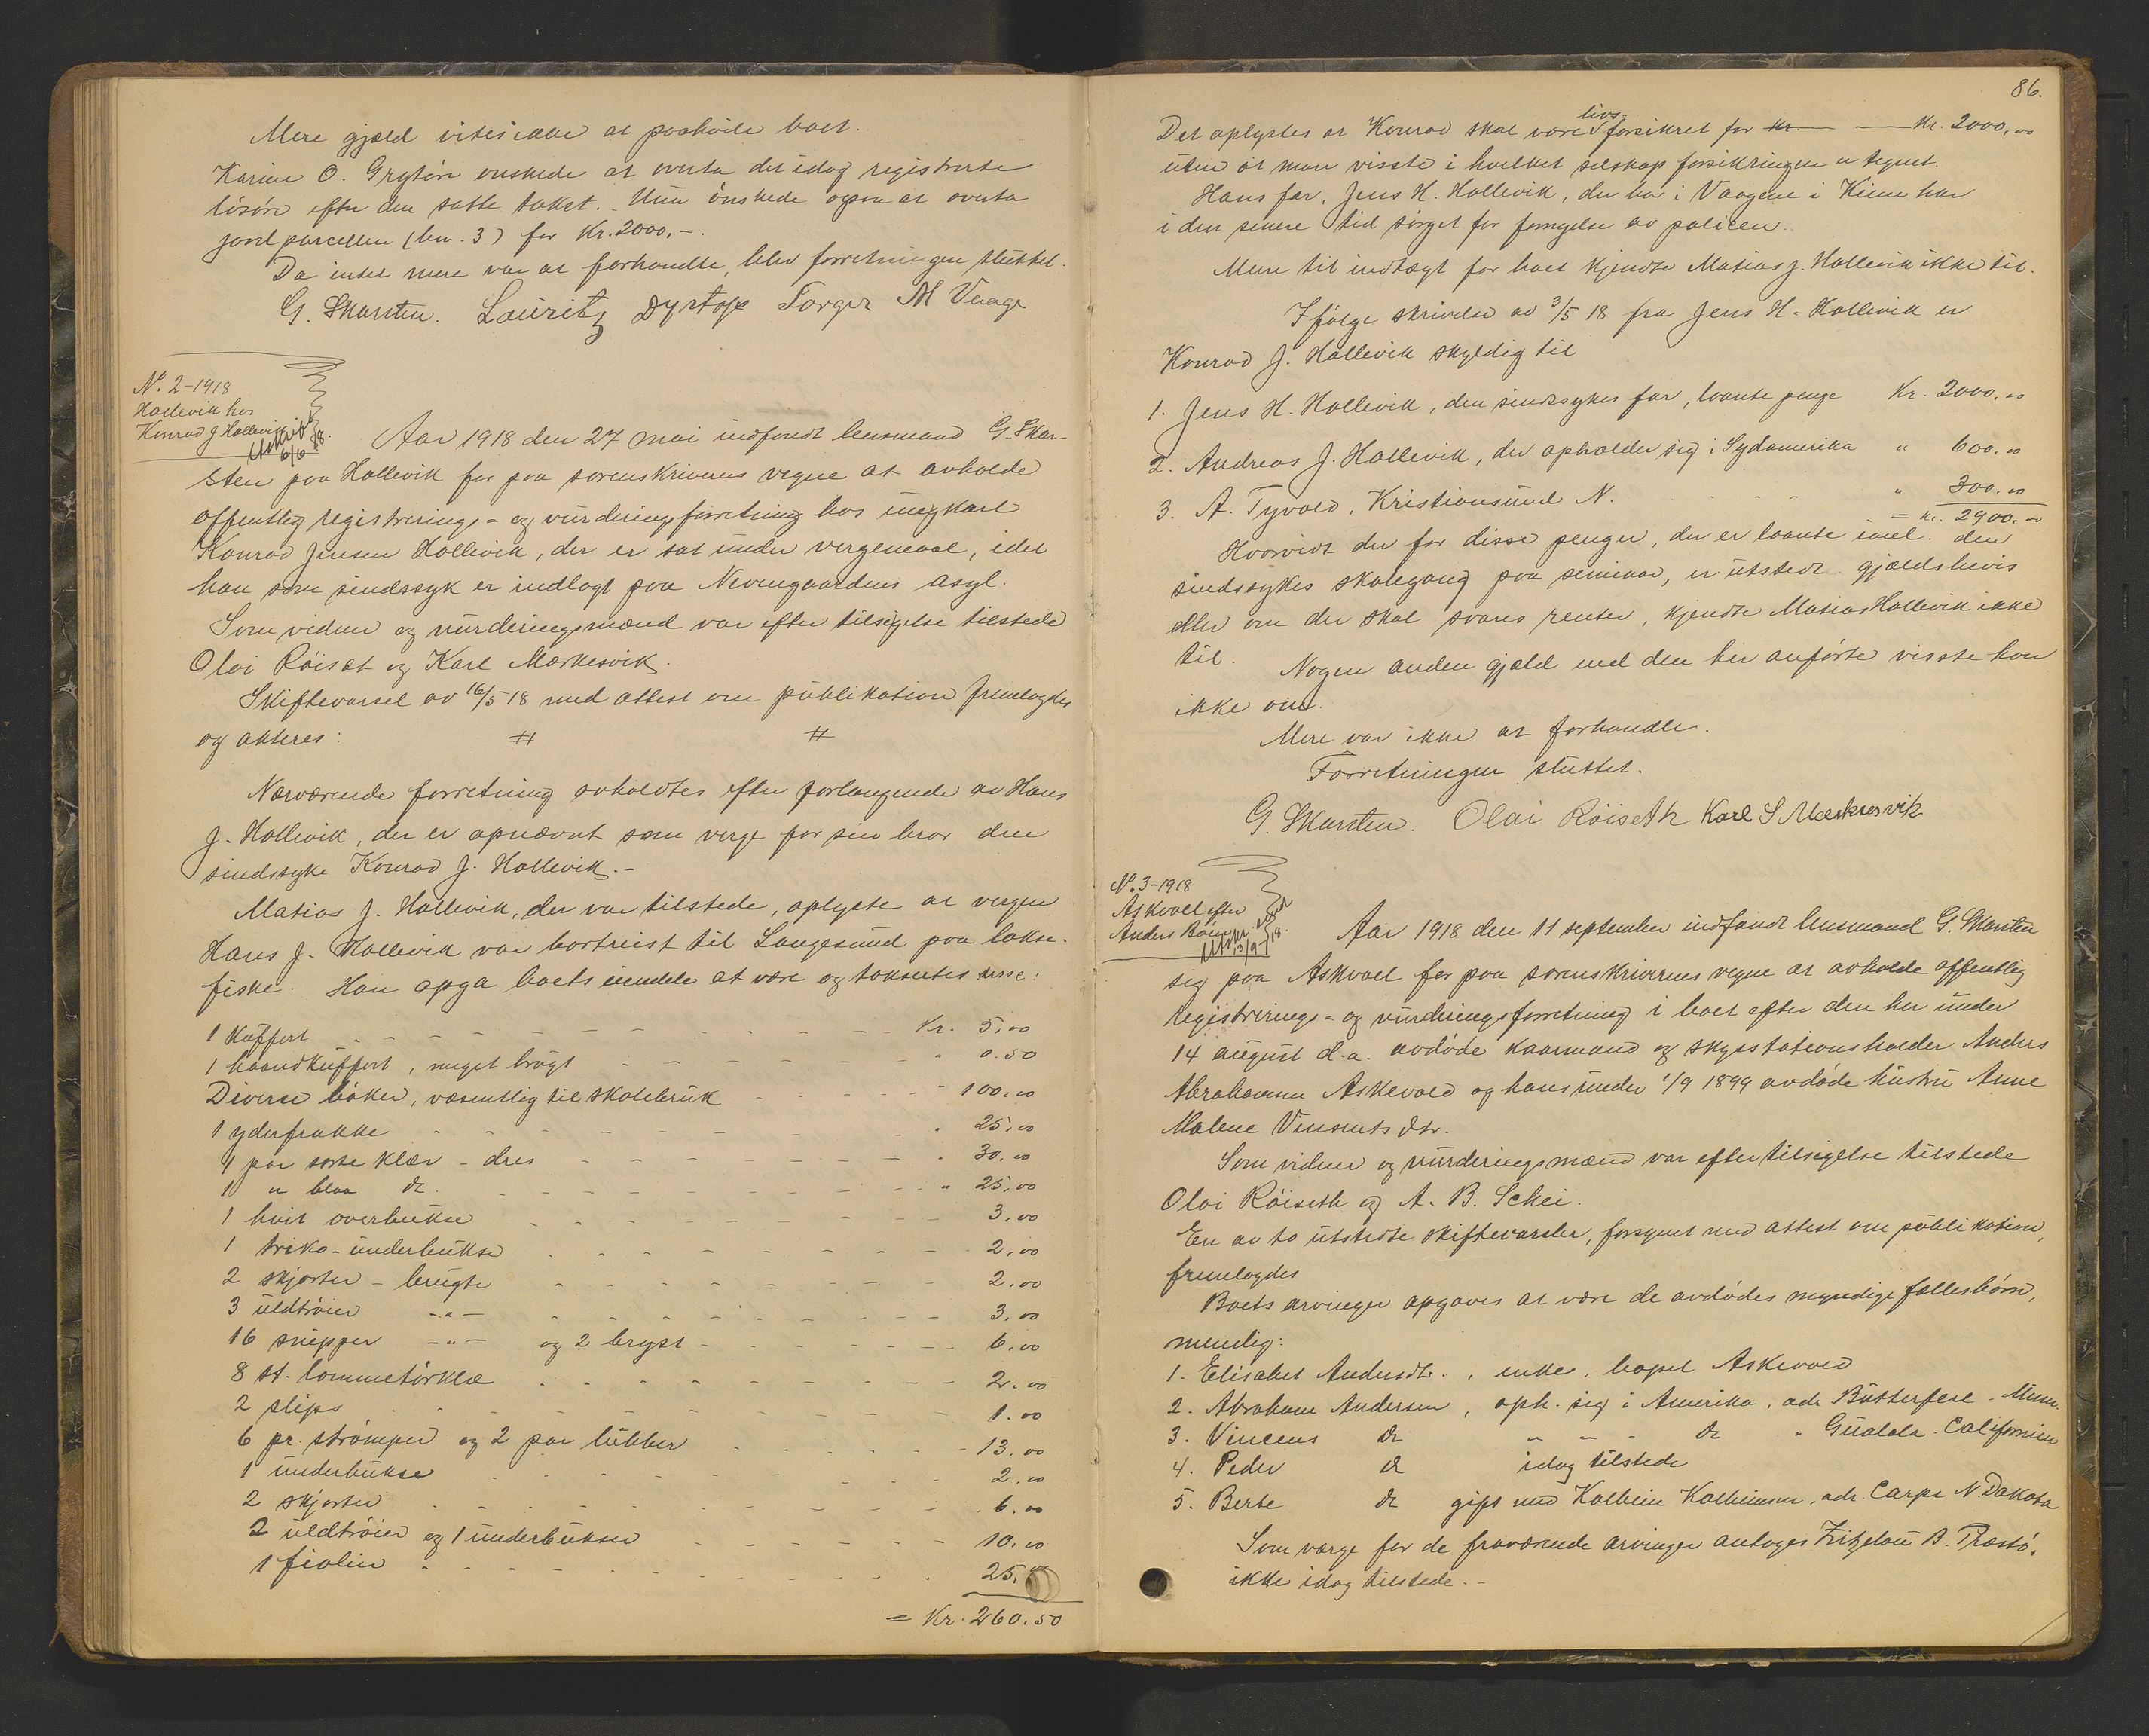 Mere gjæld vites ikke at paahvile boet.
Karine O. Grytøn ønskede at overta det idag registrerte
løsøre efter den satte takst. Hun ønskede ogsaa at overta
jordparcellen (bn. 3) for Kr. 2000,-.
Da intet mere var at forhandle, blev forretningen sluttet.
G. Skarsten. Lauritz Dyrstop Torger M Vaage
No. 2-1918
Hallevik hos
Konrad J Hallevik
Utskrift
6/6 18.
Aar 1918 den 27 mai indfandt lensmand G. Skar-
sten paa Hallevik for paa sorenskriverens vegne at avholde
offentlig registrerings- og vurderingsforretning hos ungkarl
Konrad Jensen Hallevik, der er sat under vergemaal, idet
han som sindssyk er indlagt paa Nevengaardens asyl.
Som vidner og vurderingsmænd var efter tilsigelse tilstede
Olai Röiset og Karl Mærkesvik.
Skiftevarsel av 16/5 18 med attest om publikation fremlagdes
og akteres: # #
Nærværende forretning avholdtes efter forlangende av Hans
J. Hallevik, der er opnævnt som verge for sin bror den
sindssyke Konrad J. Hallevik.-
Matias J. Hallevik, der var tilstede, oplyste at vergen
Hans J. Hallevik var bortreist til Langesund paa lakse-
fiske. Han opga boets eiendele at være og taksertes disse:
1 kuffert - - - Kr. 5,00
1 haandkuffert, meget brugt - - " 0.50
Diverse bøker, væsentlig til skolebruk - - " 100,00
1 yderfrakke - - " 25,00
1 par sorte klær - dres - - " 30,00
1 " blaa do. - - " 25,00
1 hvit overbukse - - 3,00
1 triko-underbukse - - 2,00
2 skjorter - brugte - - 2.00
3 uldtrøier -"- - - 3,00
16 snipper -"- og 2 bryst - - 6,00
8 st. lommetørklæ - - 2.00
2 slips - - 1.00
6 pr. strømper og 2 par lubber - - 13.00
1 underbukse - - 2.00
2 skjorter - - 6,00
2 uldtrøier og 1 underbukse - - 10,00
1 fiolin - - 25,00
= Kr. 260.50
86.
Det oplystes at Konrad skal være livsforsikret for kr. — Kr. 2000,00
uten at man visste i hvilket selskap forsikringen er tegnet.
Hans far, Jens H. Hallevik, der bor i Vaagene i Kinn har
i den senere tid sørget for fornyelse av policen.
Mere til indtægt for boet kjendte Matias J. Hallevik ikke til.
Ifølge skrivelse av 3/5 18 fra Jens H. Hallevik er
Konrad J. Hallevik skyldig til
1. Jens H. Hallevik, den sindssykes far, laante penge Kr. 2000.00
2. Andreas J. Hallevik, der opholder sig i Sydamerika " 600.00
3. A. Tyvold, Kristiansund N. " 300.00
= Kr. 2900.00
Hvorvidt der for disse penger, der er laante imel. den
sindssykes skolegang paa seminar, er utstedt gjældsbevis
eller om der skal svares renter, kjendte Matias Hallevik ikke
til. Nogen anden gjæld end den her anførte visste han
ikke om.
Mere var ikke at forhandle.
Forretningen sluttet.
G. Skarsten. Olai Röiseth Karl S Mærkesvik
No. 3-1918
Askvoll efter
Anders
Utskr. 
13/9-18.
Aar 1918 den 11 september indfandt lensmand G. Skarsten
sig paa Askvoll for paa sorenskriverens vegne at avholde offentlig
registrerings- og vurderingsforretning i boet efter den her under
14 august d.a. avdøde kaarmand og skysstationsholder Anders
Abrahamsen Askevold og hans under 1/9 1899 avdøde hustru Anne
Malene Vinsentsdtr.
Som vidner og vurderingsmænd var efter tilsigelse tilstede
Olai Röiseth og A. B. Schei.
En av to utstedte skiftevarsler, forsynet med attest om publikation,
fremlagdes
Boets arvinger opgaves at være de avdødes myndige fællesbørn,
nemlig:
1. Elisabet Andersdtr., enke, bopæl Askevold
2. Abraham Andersen, oph. sig i Amerika, adr. Butterfere - Minn.
3. Vincens do " " - do " Gualala - Californien
4. Peder do idag tilstede
5. Berte do gift med Kolbein Kolbeinsen, adr. Carpe N. Dakota
Som værge for de fraværende arvinger antoges Fritzlau B. Præstø,
ikke idag tilstede.-